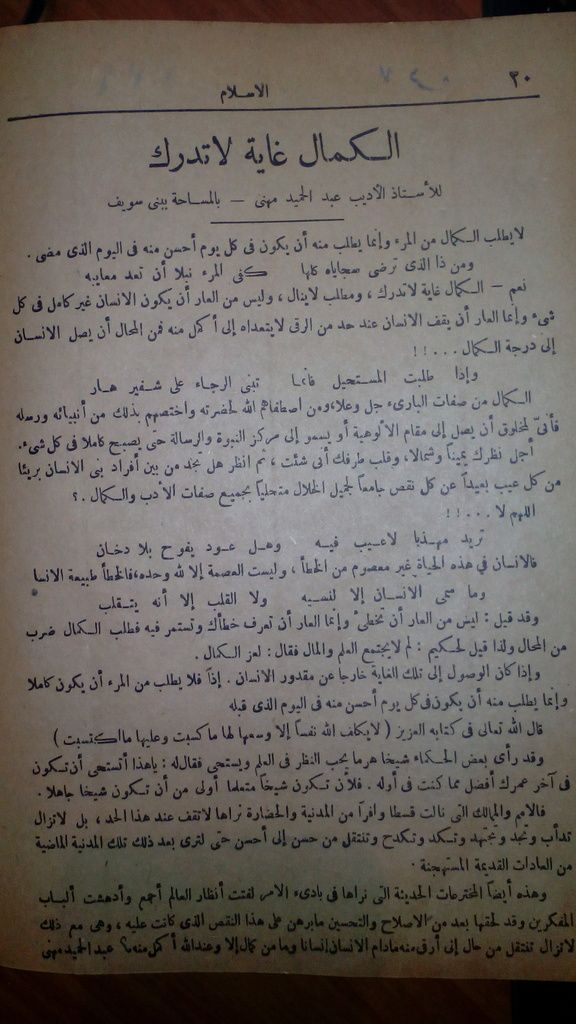 ٣٠
الاسلام
الكمال غاية لاتدرك
للأستاذ الأديب عبد الحميد مهنى — بالمساحة ببنى سويف
لايطلب الكمال من المرء وإنما يطلب منه أن يكون فى كل يوم أحسن منه فى اليوم الذى مضى .
ومن ذا الذى ترضى سجاياه كلها كفى المرء نبلا أن تعد معايبه
نعم — الكمال غاية لاتدرك ، ومطلب لاينال ، وليس من العار أن يكون الانسان غير كامل فى كل
شىء وإنما العار أن يقف الانسان عند حد من الرقى لايتعداه إلى أكمل منه فمن المحال أن يصل الانسان
إلى درجة الكمال . . . . ! !
وإذا طلبت المستحيل فانما تبنى الرجاء على شفير هار
الكمال من صفات البارىء جل وعلا، ومن اصطفاهم الله لحضرته واختصهم بذلك من أنبيائه ورسله
فأنىّ لمخلوق أن يصل إلى مقام الألوهية أو يسمو إلى مركز النبوة والرسالة حتى يصبح كاملا فى كل شىء.
أجل نظرك يميناً وشمالا، وقلب طرفك أنى شئت ، ثم انظر هل تجد من بين أفراد بنى الانسان بريئا
من كل عيب بعيداً عن كل نقص جامعاً لجميل الخلال متحلياً بجميع صفات الأدب والكمال . ؟
اللهم لا . . . ! !
تريد مهذبا لاعيب فيه وهل عود يفوح بلا دخان
فالانسان في هذه الحياة غير معصوم من الخطأ ، وليست العصمة إلا لله وحده، فالخطأ طبيعة الانسا
وما سمى الانسان إلا لنسيه ولا القلب إلا أنه يتقلب
وقد قيل : ليس من العار أن تخطىء وإنما العار أن تعرف خطأك وتستمر فيه فطلب الكمال ضرب
من المحال ولذا قيل لحكيم : لم لايجتمع العلم والمال فقال : لعز الكمال .
وإذا كان الوصول إلى تلك الغاية خارجا عن مقدور الانسان . إذاً فلا يطلب من المرء أن يكون كاملا
وإنما يطلب منه أن يكون فى كل يوم أحسن منه فى اليوم الذى قبله
قال الله تعالى فى كتابه العزيز ( لايكلف الله نفساً إلا وسعها لها ما كسبت وعليها مااكتسبت )
وقد رأى بعض الحكماء شيخا هرما يحب النظر فى العلم ويستحى فقال له : ياهذا أتستحى أن تكون
فى آخر عمرك أفضل مما كنت فى أوله . فلأن تكون شيخاً متعلما أولى من أن تكون شيخا جاهلا .
فالامم والممالك التى نالت قسطا وافرا من المدنية والحضارة نراها لاتقف عند هذا الحد ، بل لاتزال
تدأب وتجد وتجتهد وتكد وتكدح وتنتقل من حسن إلى أحسن حتى لترى بعد ذلك تلك المدنية الماضية
من العادات القديمة المستهجنة .
وهذه أيضاً المخترعات الحديثة التى نراها فى بادىء الأمر لفتت أنظار العالم أجمع وأدهشت ألباب
المفكرين وقد لحقها بعد من الاصلاح والتحسين مابرهن على هذا النقص الذى كانت عليه ، وهى مع ذلك
لاتزال تنتقل من حال إلى أرقى منه مادام الانسان إنسانا وما من كمال إلا وعند الله أكمل منه ؟ عبد الحميد مهنى